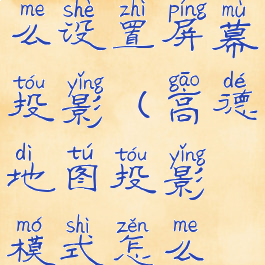 me shè zhì píng mù
么设置屏幕
tóu yǐng gāo dé
投影(高德
dì tú tóu yǐng
地图投影
mó shì zěn me
模式怎么